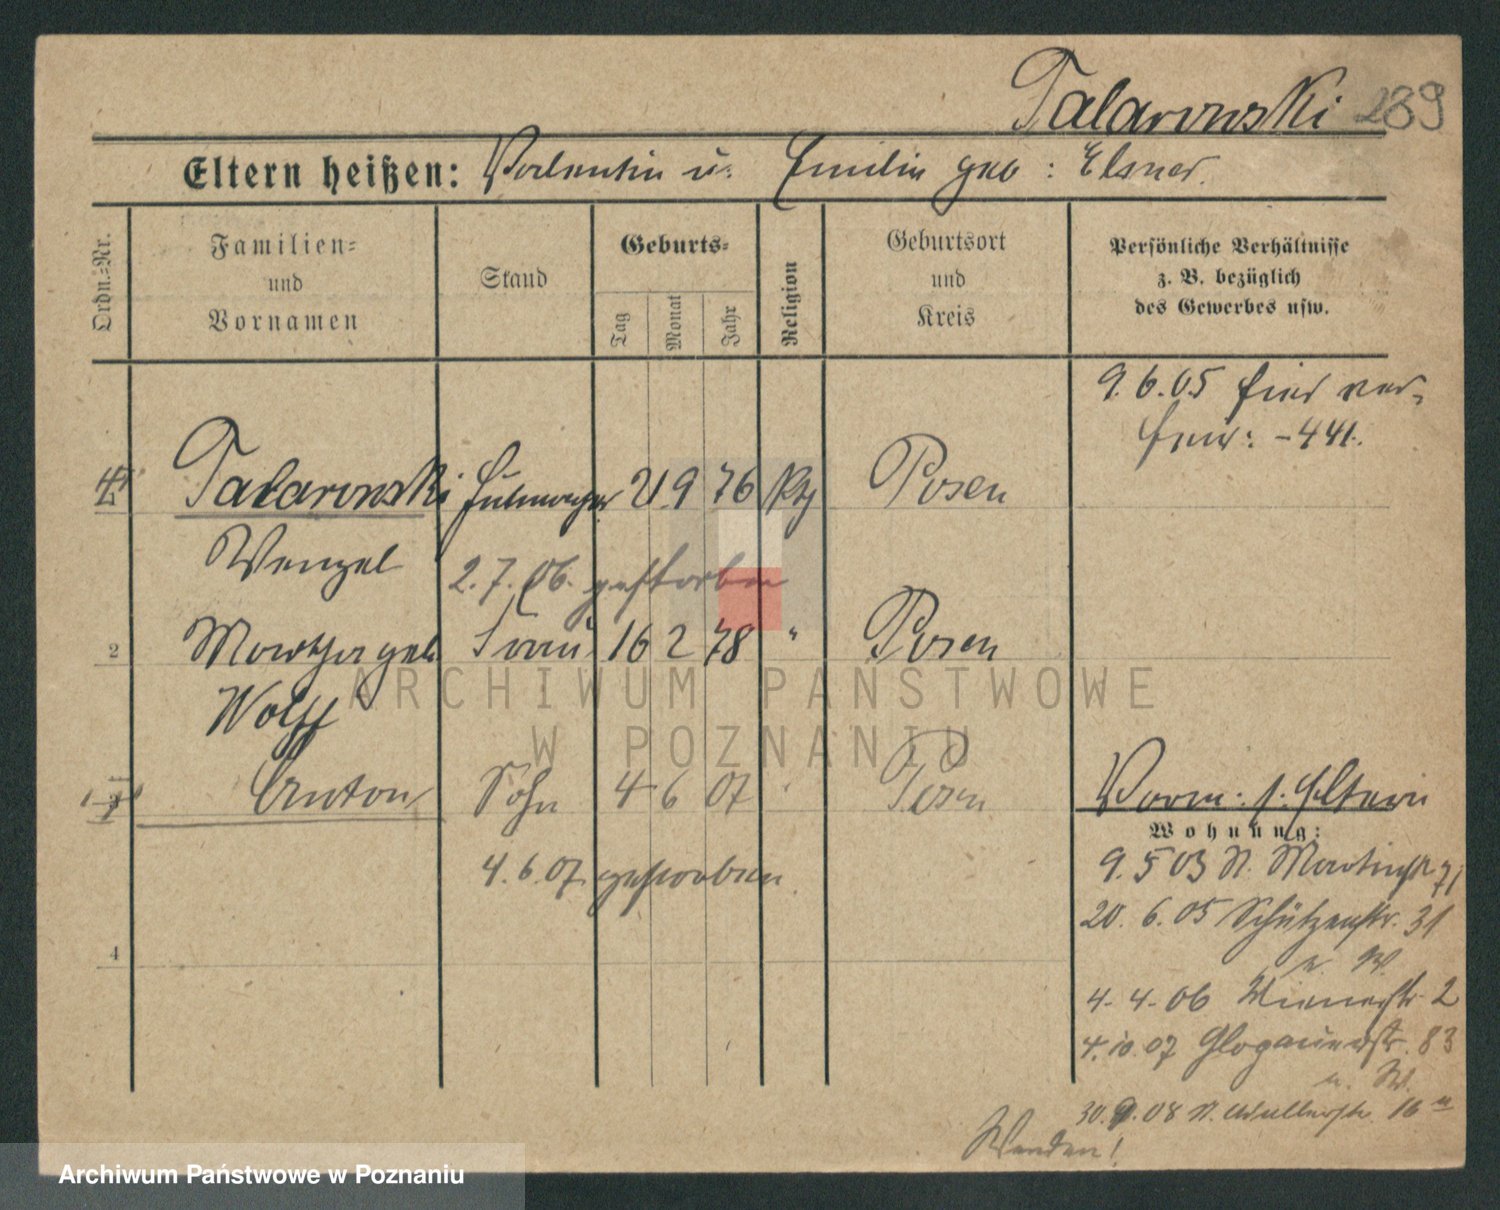 Talarowski 289
Eltern heißen: Valentin u. Emilie geb: Elsner.
Ordn.-Nr.
Familien- und Vornamen
Stand
Geburts-
Tag
Monat
Jahr
Religion
Geburtsort und Kreis
Persönliche Verhältnisse
z. B. bezüglich
des Gewerbes usw.
9.6.05 hier
-441.
Talarowski 21 9 76 kth Posen
Wenzel 2.7.06. gestorben
2 Martha geb. Frau 16 2 78 " Posen
Wolff
3 Anton Sohn 4 6 07 " Posen
Vorm: s. Eltern
Wohnung:
4.6.07 gestorben
9.5 03 St. Martinstr 71
20.6.05 Schützenstr. 31
u. W.
4
4.4.06 Wienerstr 2
4.10.07 Glogauerstr. 83
u. W.
30.9.08 16
Wenden!
ARCHIWUM PAŃSTWOWE
W POZNANIU
Archiwum Państwowe w Poznaniu